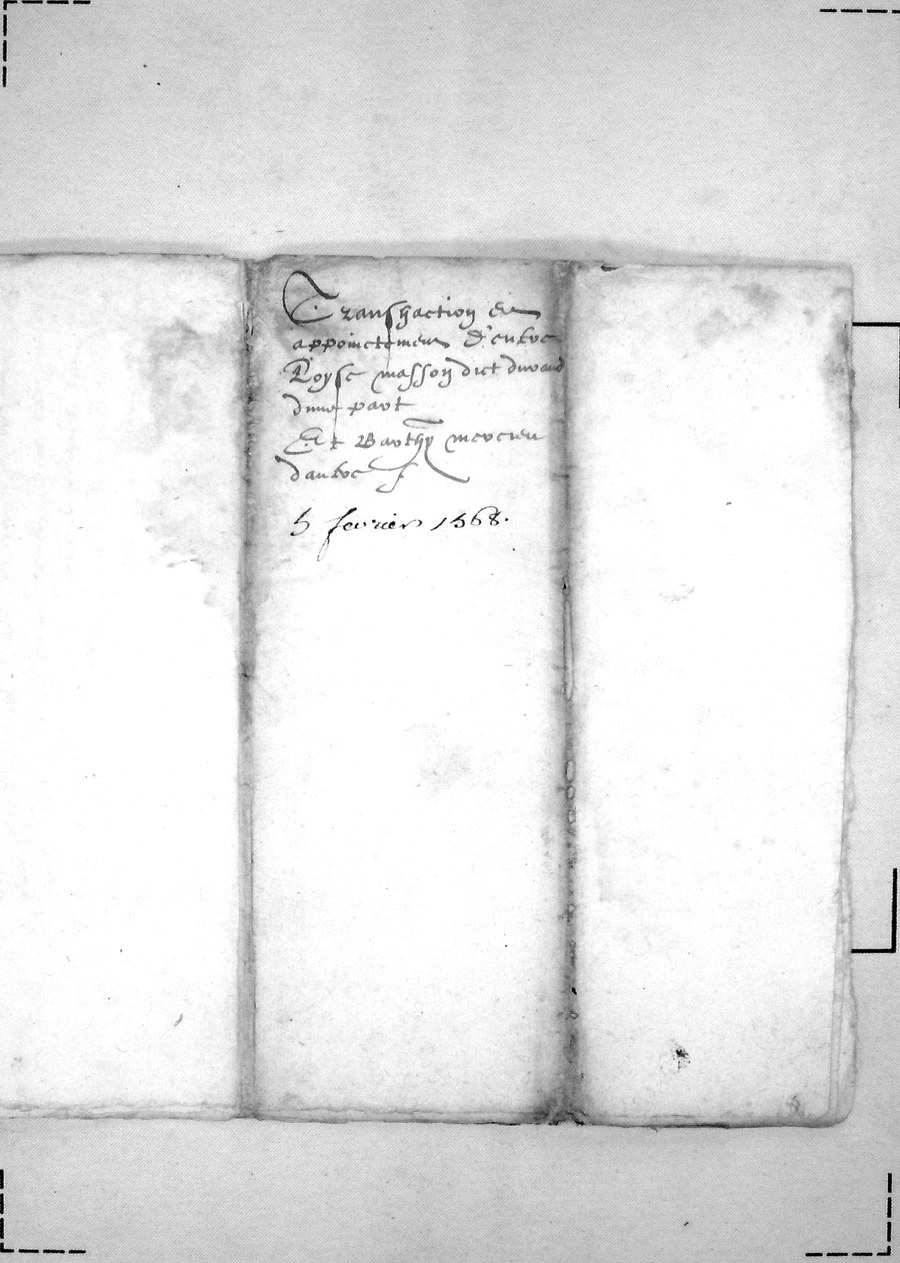 Transhaction et
appoinctement d'entre
Loyse masson dict durand
dune part
Et Barthy mercier
dautre
5 fevrier 1568.